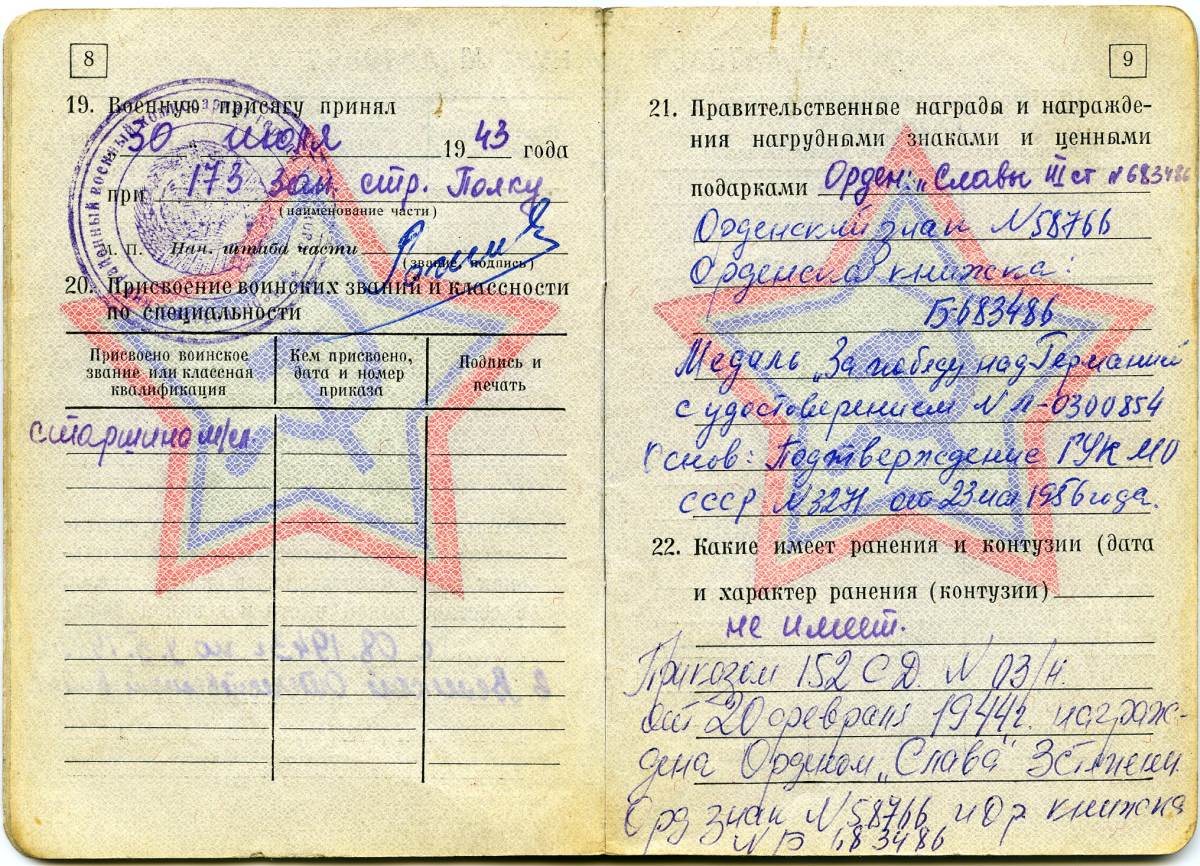 8
19. Военную присягу принял
30 июля 1943 года
при 173 зап. стр. Полку
(наименование части)
М. П. Нач. штаба части
(звание, подпись)
20. Присвоение воинских званий и классности
по специальности
Присвоено воинское
звание или классная
квалификация
Кем присвоено,
дата и номер
приказа
Подпись и
печать
старшина м/сл.
9
21. Правительственные награды и награжде-
ния нагрудными знаками и ценными
подарками Орден: „Славы III ст №683486
Орденский знак №58766
Орденска книжка:
Б-683486
Медаль „За победу над Германий
с удостоверением № М-0300854
Основ: Подтверждение ГУК МО
СССР №3271 от 23 1956 года.
22. Какие имеет ранения и контузии (дата
и характер ранения (контузии)
не имеет.
Приказом 152 СД. № 03/н.
от 20 февраля 1944г. награж-
дена Орденом „Слава" 3 степени.
Орд знак №58766 и Ор книжка
№ Б 683486